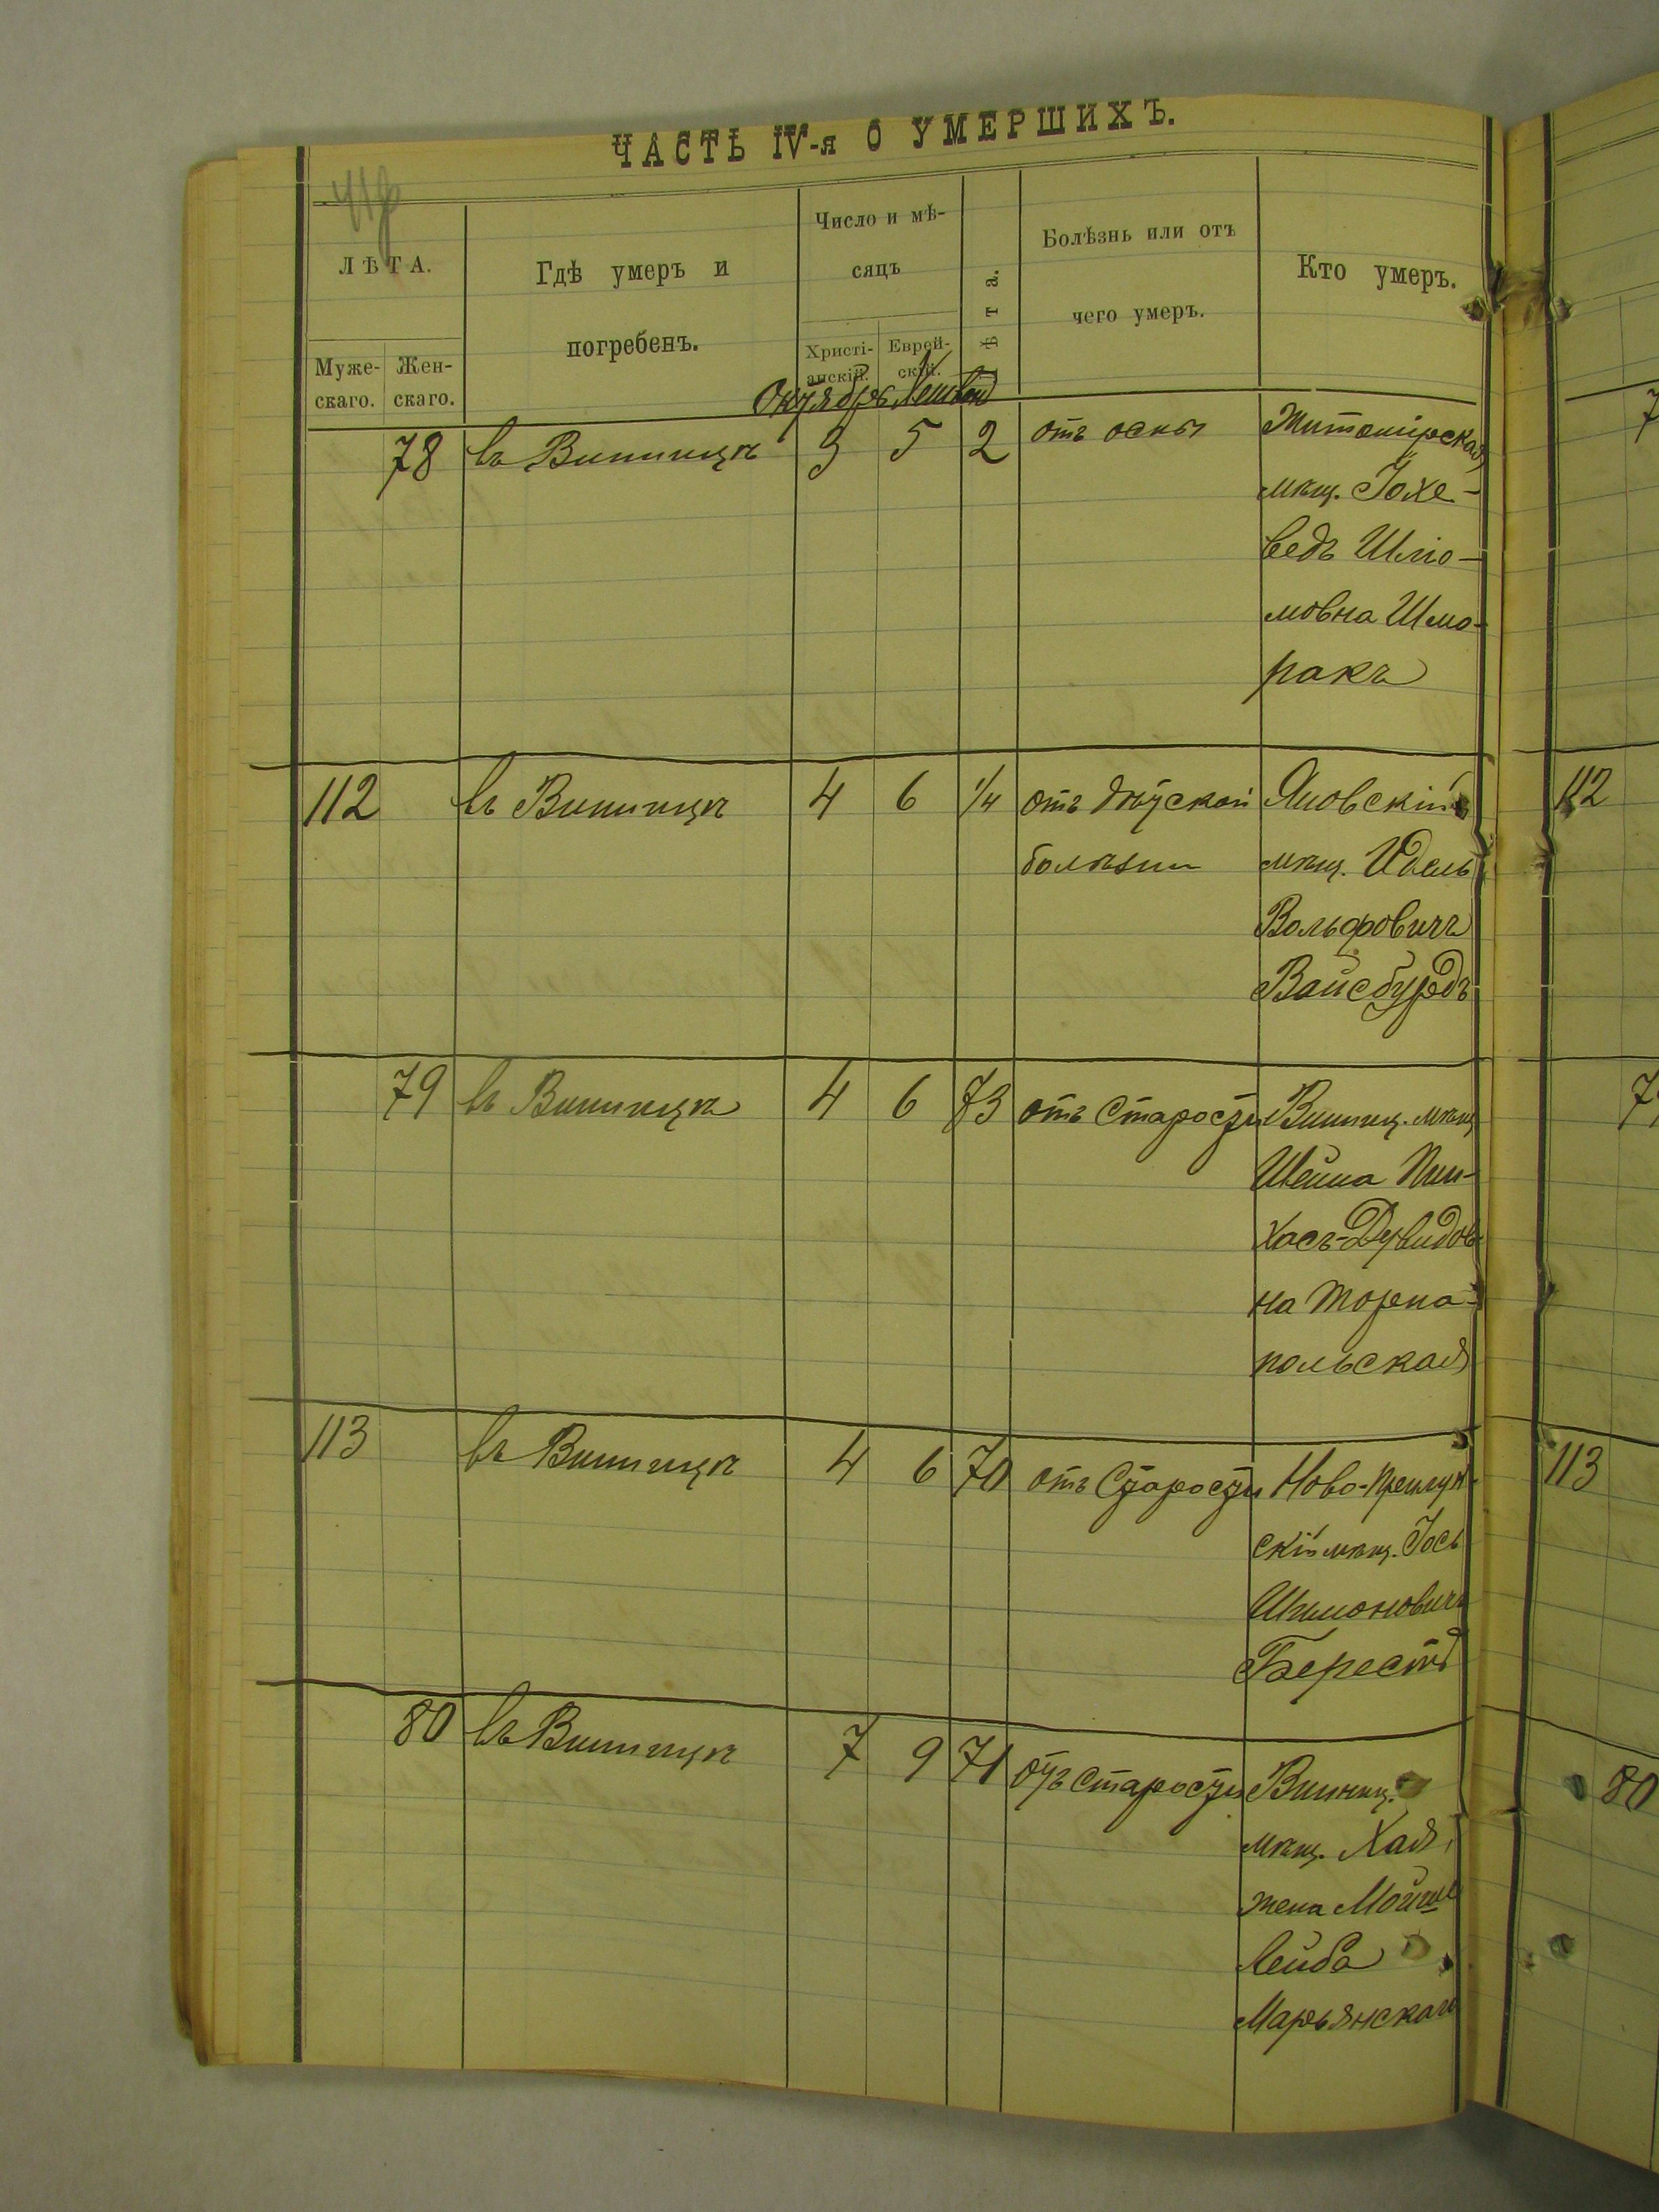 ЧАСТЬ IV-я О УМЕРШИХЪ.
ЛѢТА.
Муже-
скаго.
Жен-
скаго.
Гдѣ умеръ и
погребенъ.
Число и мѣ-
сяцъ
Христі-
анскій.
Еврей-
скій.
Лѣта.
Болѣзнь или отъ
чего умеръ.
Кто умеръ.
Октябрь Хешвон
78 въ Винницѣ 3 5 2 отъ оспы Житомірская
мѣщ. Іохе-
ведъ Шліо-
мовна Шмо-
ракъ
112 въ Винницѣ 4 6 1/4 отъ дѣтской Яновскій
болѣзни мѣщ. Идель
Вольфовичъ
Вайсбурдъ
79 въ Винницѣ 4 6 73 отъ старости Винниц. мѣщ
Шейна Пин-
хасъ-Дувидов-
на Торпа-
польская
113 въ Винницѣ 4 6 70 отъ старости Ново-Прилук-
скій мѣщ. Іось
Шимоновичъ
Берестъ
80 въ Винницѣ 7 9 71 отъ старости Винниц.
мѣщ. Хая,
жена Мойше
Лейба
Марьянскаго
7
112
79
113
80